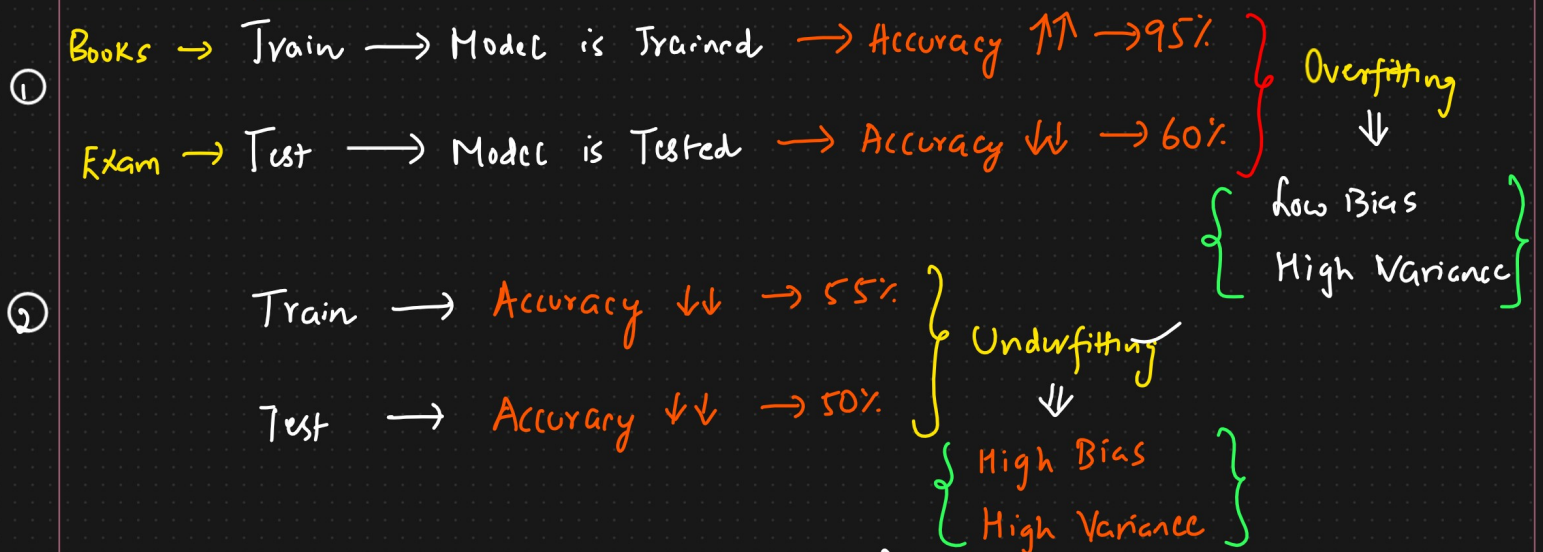 Books → Train → Model is Trained → Accuracy ↑↑ → 95%
① Overfitting
Exam → Test → Model is Tested → Accuracy ↓↓ → 60%
⇓
Low Bias
High Variance
② Train → Accuracy ↓↓ → 55%
Underfitting
Test → Accuracy ↓↓ → 50%
⇓
High Bias
High Variance